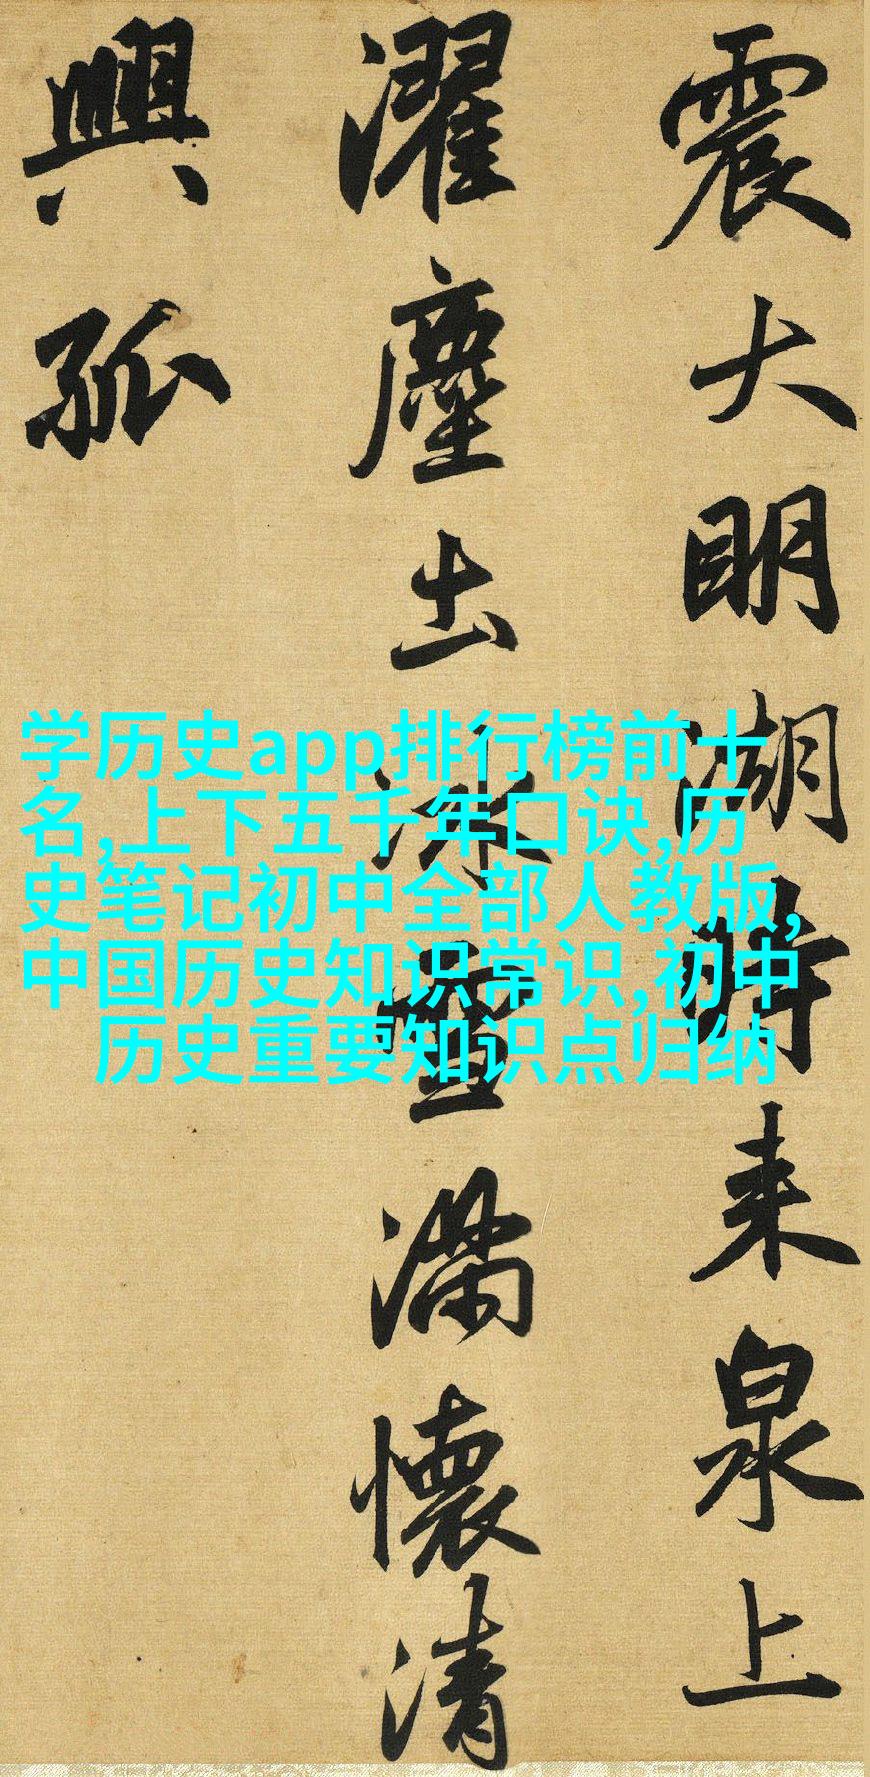 震大明湖時来泉上
濯塵土冰雪滿懷清
興孤
学历史app排行榜前十
名,上下五千年口诀,历
史笔记初中全部人教版,
中国历史知识常识,初中
历史重要知识点归纳